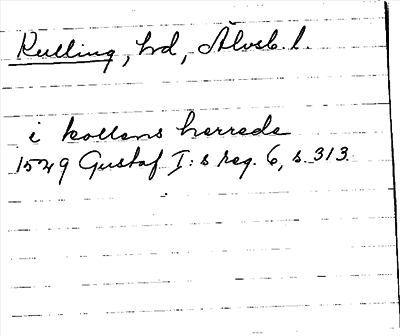 Kulling, hd, Älvsb. l.
i kollens herrede
1529 Gustaf I:s reg. 6, s. 313.